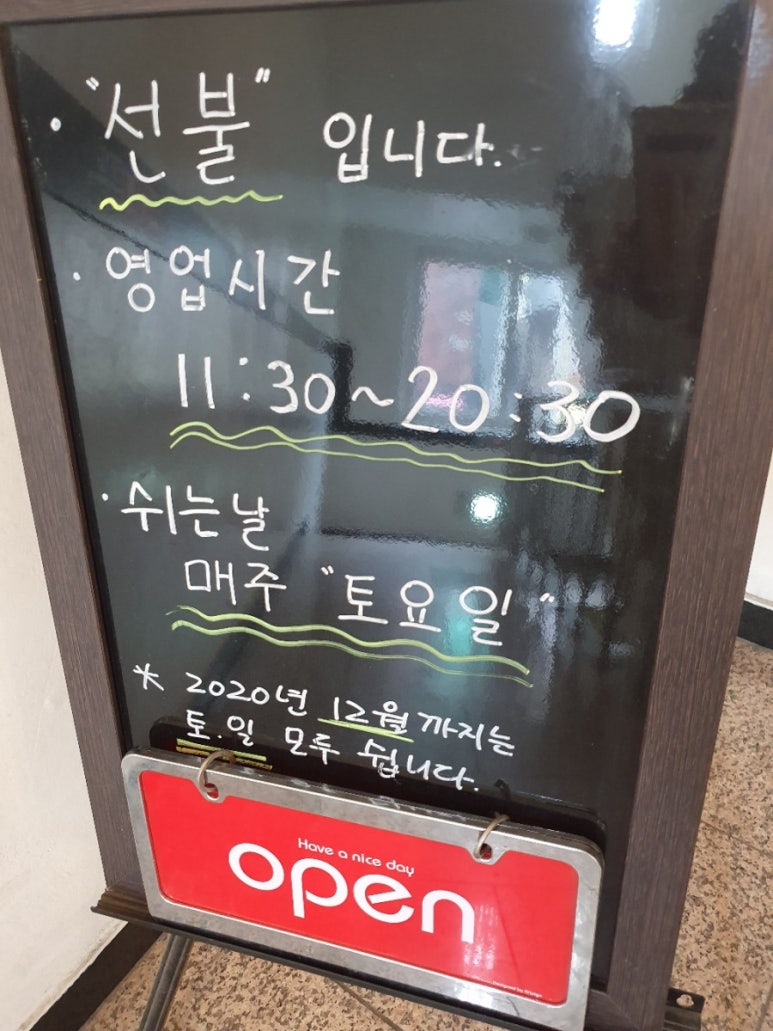 · "선불" 입니다.
· 영업시간
11:30~20:30
· 쉬는날
매주 "토요일"
* 2020년 12월까지는
토.일 모두 쉽니다.
Have a nice day
open